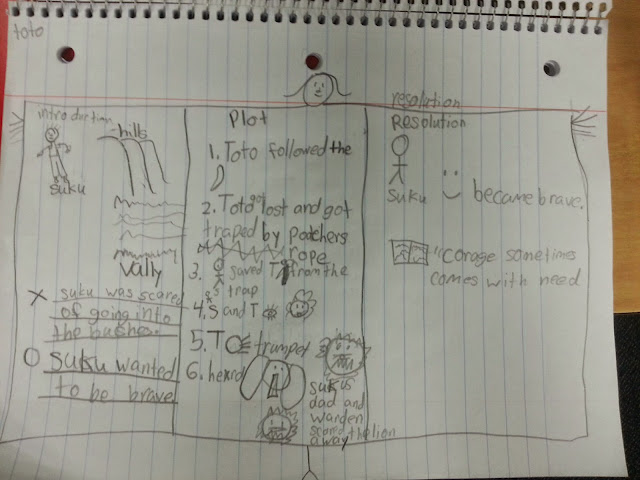 toto
introduction
hills
suku
Vally
X suku was scared
of going into
the bushes.
O suku wanted
to be brave
Plot
1. Toto followed the
2. Toto got lost and got
traped by potchers
rope
3. saved T from the
trap
4. S and T
5. T trumpet
6. heard
sukus
dad and
warden
scared the lion
away
resolution
Resolution
suku became brave.
"Corage somtimes
comes with need